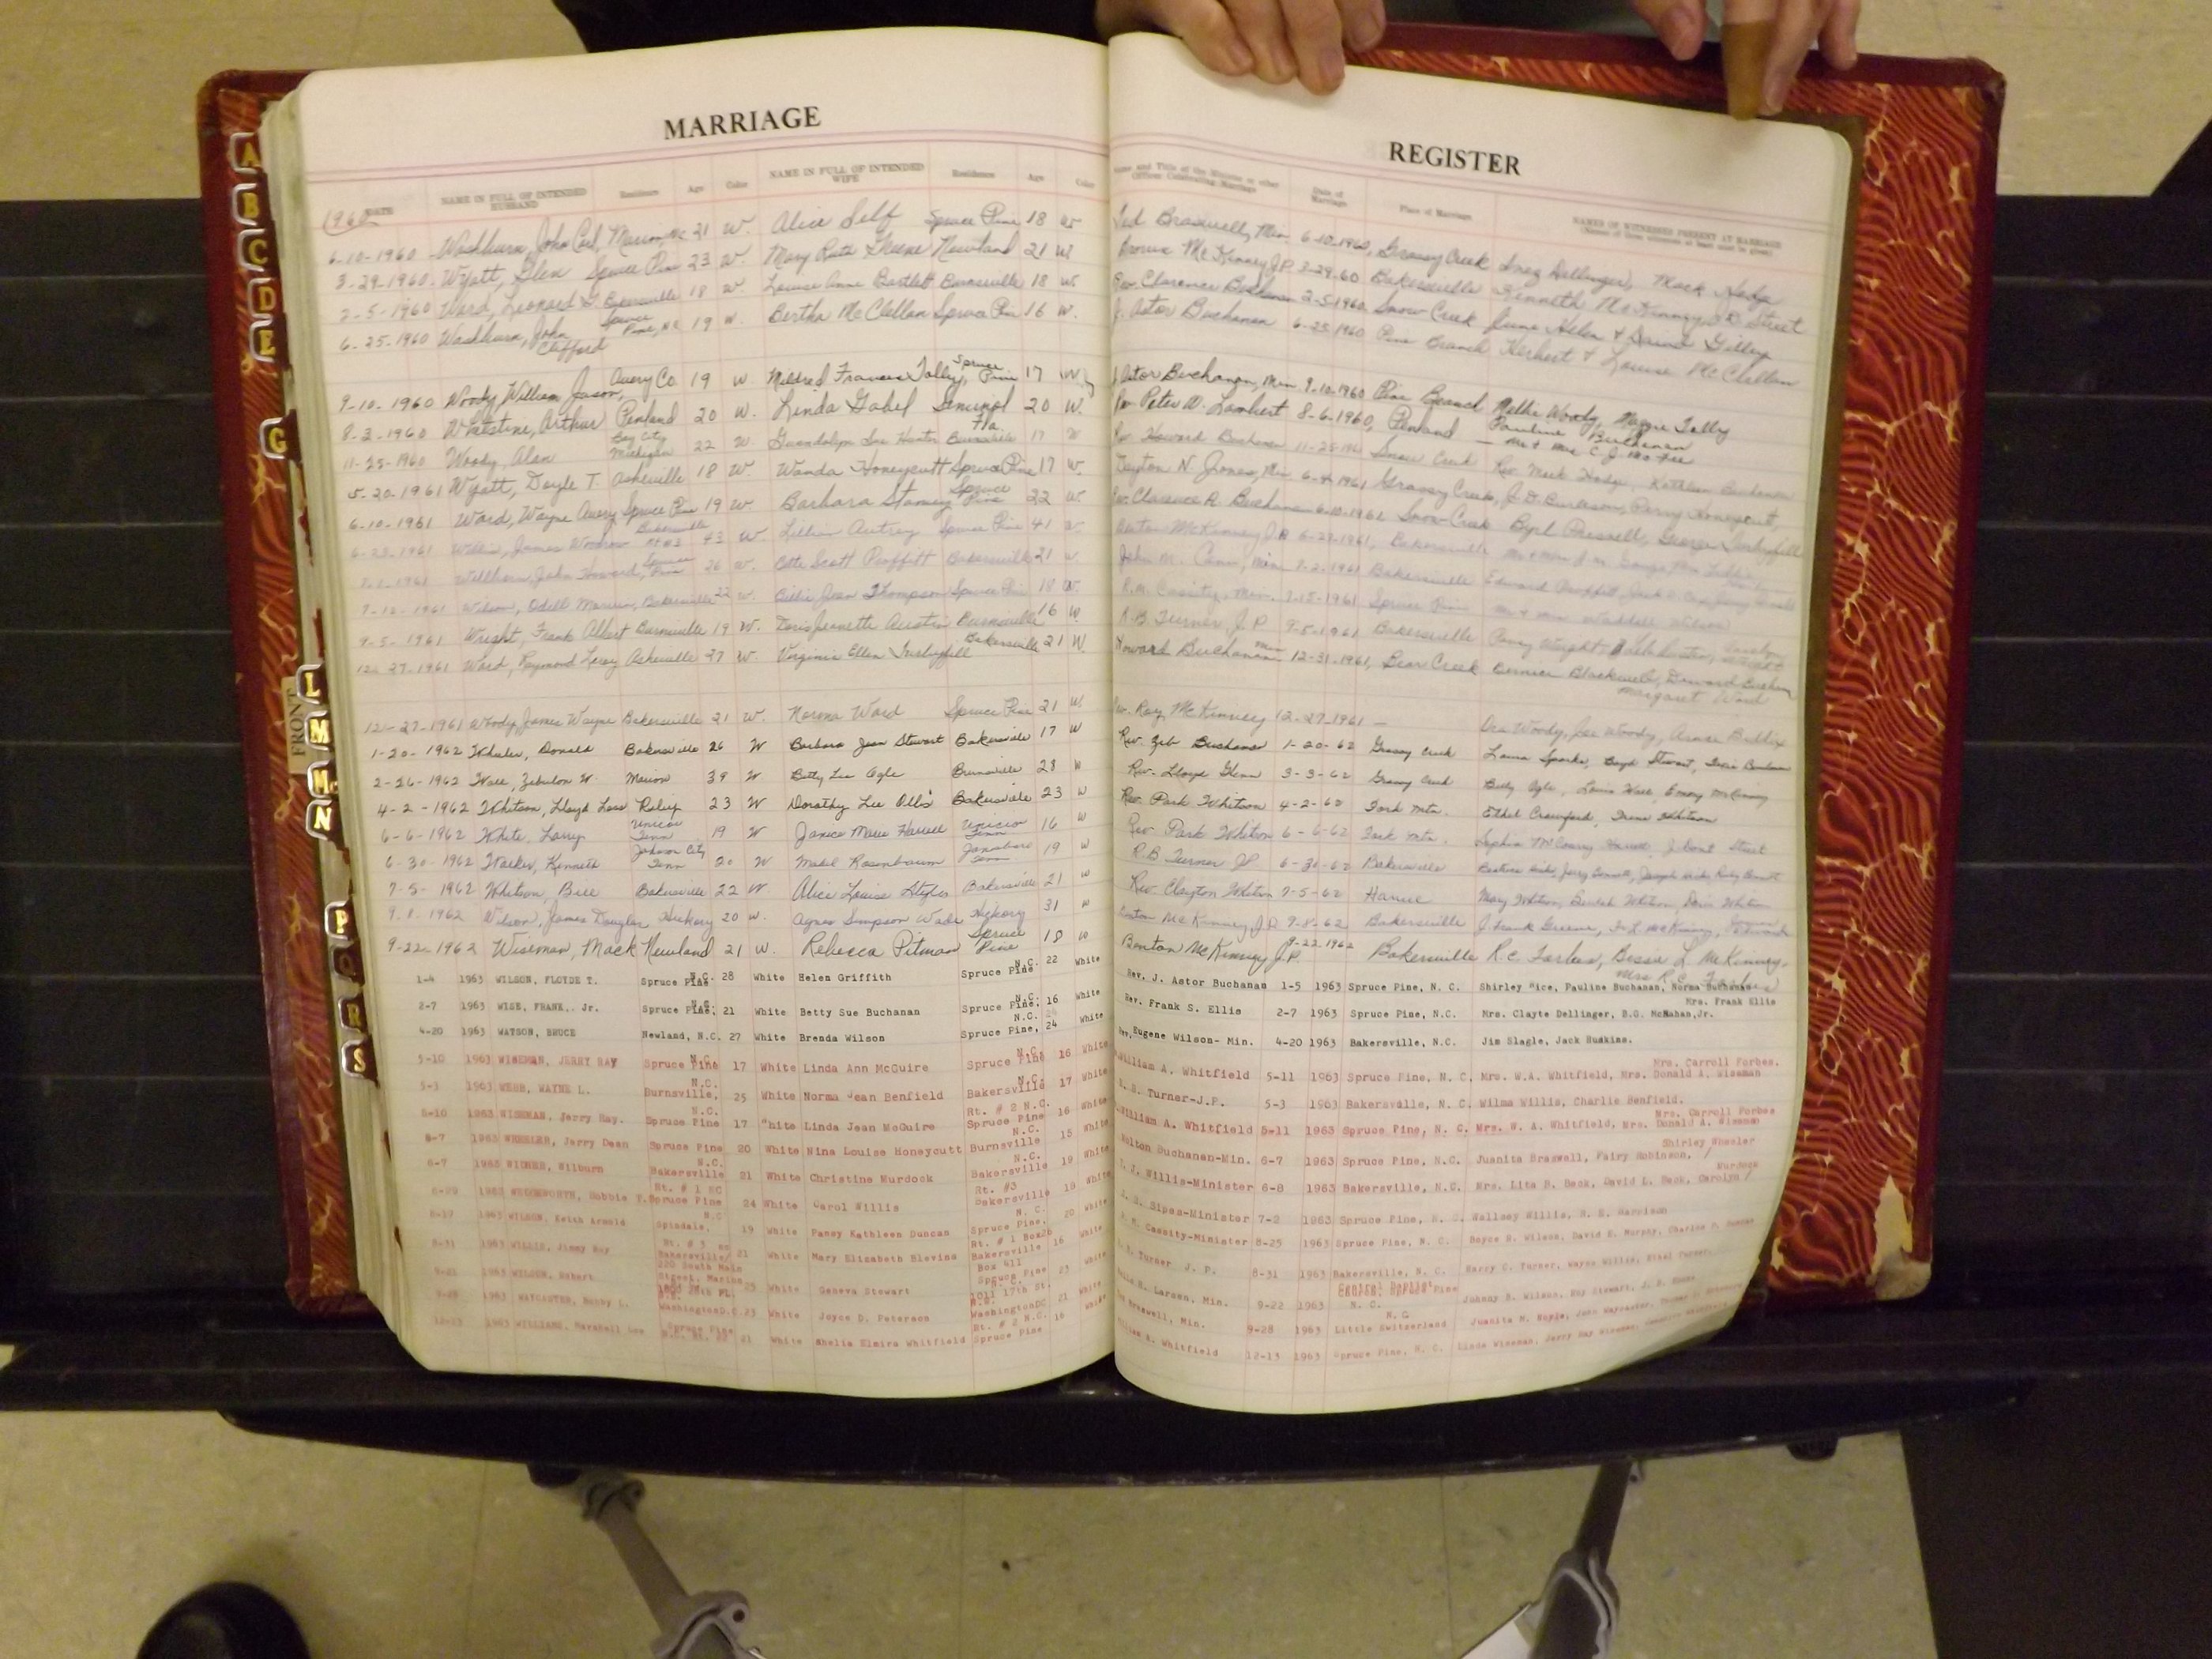 MARRIAGE
NAME IN FULL OF INTENDED HUSBAND Residence Age Color NAME IN FULL OF INTENDED WIFE Residence Age Color
1960 DATE
6-10-1960 Washburn, John Carl, Marion, NC 21 W. Alice Self Spruce Pine 18 W
3-29-1960 Wyatt, Glen Spruce Pine 23 W. Mary Ruth Greene Newland 21 W
2-5-1960 Ward, Leonard G. Bakersville 18 W. Louise Anne Bartlett Burnsville 18 W
6-25-1960 Washburn, John Clifford Spruce Pine, N.C. 19 W. Bertha McClellan Spruce Pine 16 W.
9-10-1960 Woody, William Jason, Avery Co. 19 W. Mildred Frances Tolley, Spruce Pine 17 W
8-2-1960 Arthur Penland 20 W. Linda Gabel Fla. 20 W.
11-25-1960 Woody, Alan Bay City Michigan 22 W. Gwendolyn Sue Hunter Burnsville 17 W
5-20-1961 Wyatt, Doyle T. Asheville 18 W. Wanda Honeycutt Spruce Pine 17 W.
6-10-1961 Ward, Wayne Avery Spruce Pine 19 W Barbara Stamey Spruce Pine 22 W
6-23-1961 Willis, James Woodrow Bakersville Rt #3 43 W. Lillian Autrey Spruce Pine 41 W
1961 Wellborn, John Howard, Spruce Pine 26 W. Scott Proffitt Bakersville 21 W
7-12-1961 Wilson, Odell Bakersville 22 W. Billie Jean Thompson Spruce Pine 18 W.
9-5-1961 Wright, Frank Albert Burnsville 19 W. Doris Jeanette Austin Burnsville 16 W
12-27-1961 Ward, Raymond Leroy Asheville 27 W. Virginia Ellen Turbyfill Bakersville 21 W
12-27-1961 Woody, James Wayne Bakersville 21 W. Norma Ward Spruce Pine 21 W.
1-20-1962 Donald Bakersville 26 W Barbara Jean Stewart Bakersville 17 W
2-26-1962 Wall, Zebulon W. Marion 39 W Betty Lee Ogle Burnsville 28 W
4-2-1962 Whitson, Lloyd Relief 23 W Dorothy Lee Ollis Bakersville 23 W
6-6-1962 White, Larry Unicoi Tenn 19 W Janice Marie Harrell Unicoi Tenn 16 W
6-30-1962 Kenneth Johnson City Tenn 20 W Mabel Rosenbaum Jonesboro Tenn 19 W
7-5-1962 Whitson, Bill Bakersville 22 W Alice Louise Bakersville 21 W
9-8-1962 Wilson, James Douglas, Hickory 20 W. Agnes Simpson Wade Hickory 31 W
9-22-1962 Wiseman, Mack Newland 21 W. Rebecca Pitman Spruce Pine 18 W
1-4 1963 WILSON, FLOYDE T. Spruce Pine N.C. 28 White Helen Griffith Spruce Pine N.C. 22 White
2-7 1963 WISE, FRANK,. Jr. Spruce Pine, N.C. 21 White Betty Sue Buchanan Spruce Pine, N.C. 16 White
4-20 1963 WATSON, BRUCE Newland, N.C. 27 White Brenda Wilson Spruce Pine, N.C. 24 White
5-10 1963 WISEMAN, JERRY RAY Spruce Pine N.C. 17 White Linda Ann McGuire Spruce Pine N.C. 16 White
5-3 1963 WEBB, WAYNE L. Burnsville, N.C. 25 White Norma Jean Benfield Bakersville N.C. 17 White
5-10 1963 WISEMAN, Jerry Ray. Spruce Pine N.C. 17 White Linda Jean McGuire Rt. # 2 N.C. Spruce Pine 16 White
6-7 1963 WHEELER, Jerry Dean Spruce Pine 20 White Nina Louise Honeycutt Burnsville N.C. 15 White
6-7 1963 Wilburn Bakersville N.C. 21 White Christine Murdock Bakersville N.C. 19 White
6-29 1963 Bobbie F. Rt. # 1 NC Spruce Pine 24 White Carol Willis Rt. #3 Bakersville 18 White
8-17 1963 WILSON, Keith Arnold Spindale, N.C. 19 White Pansy Kathleen Duncan Spruce Pine, N.C. 20 White
8-31 1963 WILLIS, Jimmy Ray Rt. # 3 Bakersville 21 White Mary Elizabeth Blevins Rt. # 1 Box Bakersville 16 White
9-21 1963 WILSON, Robert 220 South Main Street, Marion 25 White Geneva Stewart Box 411 Spruce Pine 23 White
9-28 1963 WAYCASTER, Bobby L. Washington D.C. 23 White Joyce D. Peterson 1011 17th St. Washington DC 21 White
12-13 1963 WILLIAMS, Marshall Lee Spruce Pine 21 White Shelia Elmira Whitfield Rt. # 2 N.C. Spruce Pine 16 White
REGISTER
Name and Title of the Minister or other Officer Celebrating Marriage Date of Marriage Place of Marriage NAMES OF WITNESSES PRESENT AT MARRIAGE
Braswell, Min. 6-10-1960, Grassy Creek Inez Dellinger, Mack Hodge
McKinney J.P. 3-29-60 Bakersville Kenneth McKinney, Street
Rev. Clarence Buchanan 2-5-1960 Snow Creek June Helen & David Gilley
J. Astor Buchanan 6-25-1960 Pine Branch Herbert & Louise McClellan
J. Astor Buchanan, Min 9-10-1960 Pine Branch Nellie Woody, Maggie Tolley Pauline Buchanan
Rev Peter W. Lambert 8-6-1960, Penland — Mr & Mrs C. J.
Rev. Howard Buchanan 11-25-1960 Snow Creek Rev. Mack Hodge, Kathleen Buchanan
Clayton N. Jones, Min 6-4-1961 Grassy Creek, J.D. Burleson, Perry Honeycutt,
Rev. Clarence A. Buchanan 6-10-1961 Snow Creek Byrl Presnell, George Turbyfill
McKinney J.P. 6-23-1961, Bakersville
John M. Min 1961 Bakersville Edward Proffitt,
R.M. Cassity, Min. 7-15-1961 Spruce Pine Mr & Mrs Waddell Wilson
R.B. Turner J.P. 9-5-1961 Bakersville
Howard Buchanan Min 12-31-1961, Bear Creek Bernice Blackwell, Margaret Ward
Rev. Roy McKinney 12-27-1961 — Woody, Joe Woody,
Rev. Zeb Buchanan 1-20-62 Grassy Creek Laura Sparks, Boyd Stewart,
Rev. Lloyd Glenn 3-3-62 Grassy Creek Billy Ogle, Louis Wall, Emory McKinney
Rev. Park Whitson 4-2-62 Fork Mtn. Ethel Crawford, Irene Whitson
Rev. Park Whitson 6-6-62 Fork Mtn. Sophia McCoury
R.B Turner JP 6-30-62 Bakersville
Rev. Clayton Whitson 7-5-62 Mary Whitson, Beulah Whitson, Doris Whitson
McKinney J.P. 9-8-62 Bakersville J. Frank Greene,
Benton McKinney J.P. 9-22-1962 Bakersville R.C. Forbes, Bessie L. McKinney- Mrs R.C. Forbes
Rev. J. Astor Buchanan 1-5 1963 Spruce Pine, N. C. Shirley Rice, Pauline Buchanan, Norma Buchanan
Rev. Frank S. Ellis 2-7 1963 Spruce Pine, N.C. Mrs. Clayte Dellinger, B.G. McMahan, Jr. Mrs. Frank Ellis
Rev, Eugene Wilson- Min. 4-20 1963 Bakersville, N.C. Jim Slagle, Jack Huskins.
William A. Whitfield 5-11 1963 Spruce Pine, N. C. Mrs. W.A. Whitfield, Mrs. Donald A. Wiseman Mrs. Carroll Forbes.
Turner-J.P. 5-3 1963 Bakersville, N. C. Wilma Willis, Charlie Benfield.
William A. Whitfield 5-11 1963 Spruce Pine, N. C. Mrs. W. A. Whitfield, Mrs. Donald A. Wiseman Mrs. Carroll Forbes
Buchanan-Min. 6-7 1963 Spruce Pine, N.C. Juanita Braswell, Fairy Robinson, / Shirley Wheeler
Willis-Minister 6-8 1963 Bakersville, N.C. Mrs. Lita B. Beck, David L. Beck, Carolyn / Murdock
Sipes-Minister 7-2 1963 Spruce Pine, N. C. Willis,
Cassity-Minister 8-25 1963 Spruce Pine, N. C. Boyce D. Wilson, David E. Murphy, Charles D. Duncan
Turner J. P. 8-31 1963 Bakersville, N. C. Harry C. Turner, Wayne Willis, Ethel Turner.
Larsen, Min. 9-22 1963 Central Baptist N. C. Johnny B. Wilson, Roy Stewart,
Braswell, Min. 9-28 1963 Little Switzerland N.C Juanita
Whitfield 12-13 1963 Spruce Pine, N. C. Linda Wiseman, Jerry Ray Wiseman,
A
B
C
D
E
G
L
FRONT
M
Mc
N
P
Q
R
S